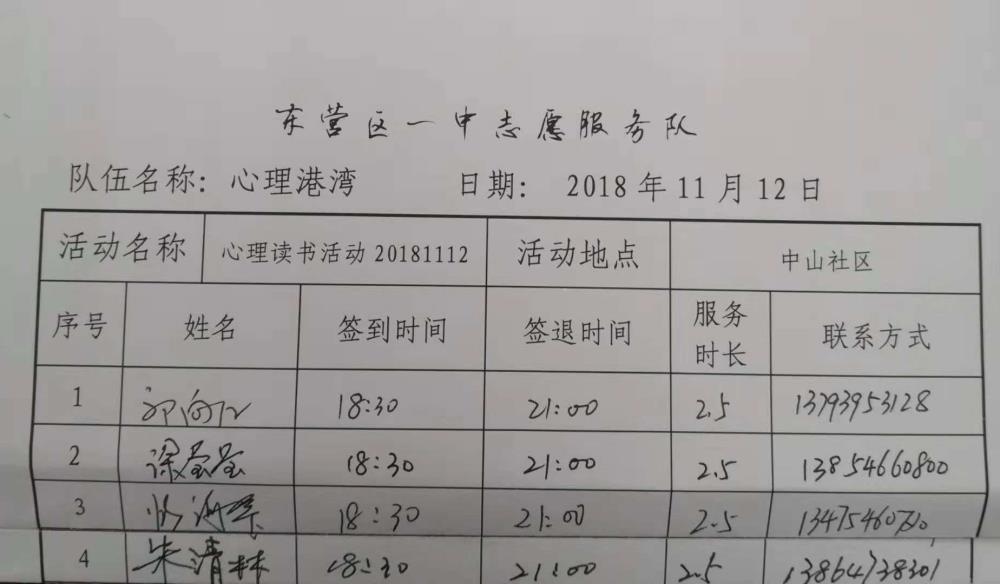 东营区一中志愿服务队
队伍名称：心理港湾 日期： 2018 年 11 月 12 日
活动名称 心理读书活动 20181112 活动地点 中山社区
序号 姓名 签到时间 签退时间 服务时长 联系方式
1 18:30 21:00 2.5 13793953128
2 梁莹莹 18:30 21:00 2.5 13854660800
3 18:30 21:00 2.5
4 朱清林 18:30 21:00 2.5 13864738301